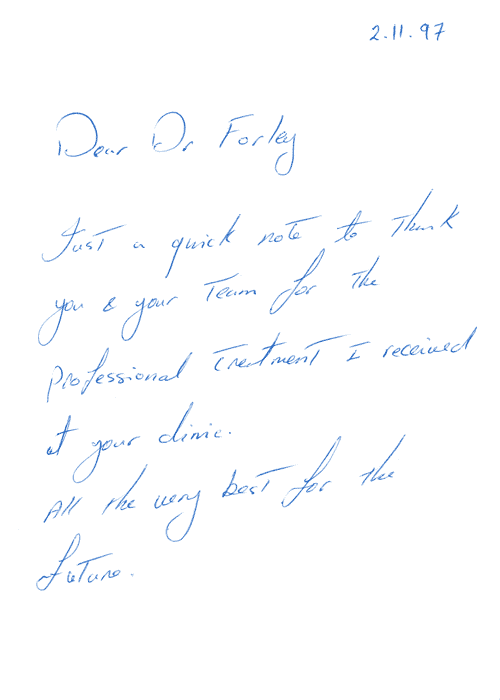 2.11.97
Dear Dr Forley
Just a quick note to thank
you & your Team for the
professional treatment I received
at your clinic.
All the very best for the
future.